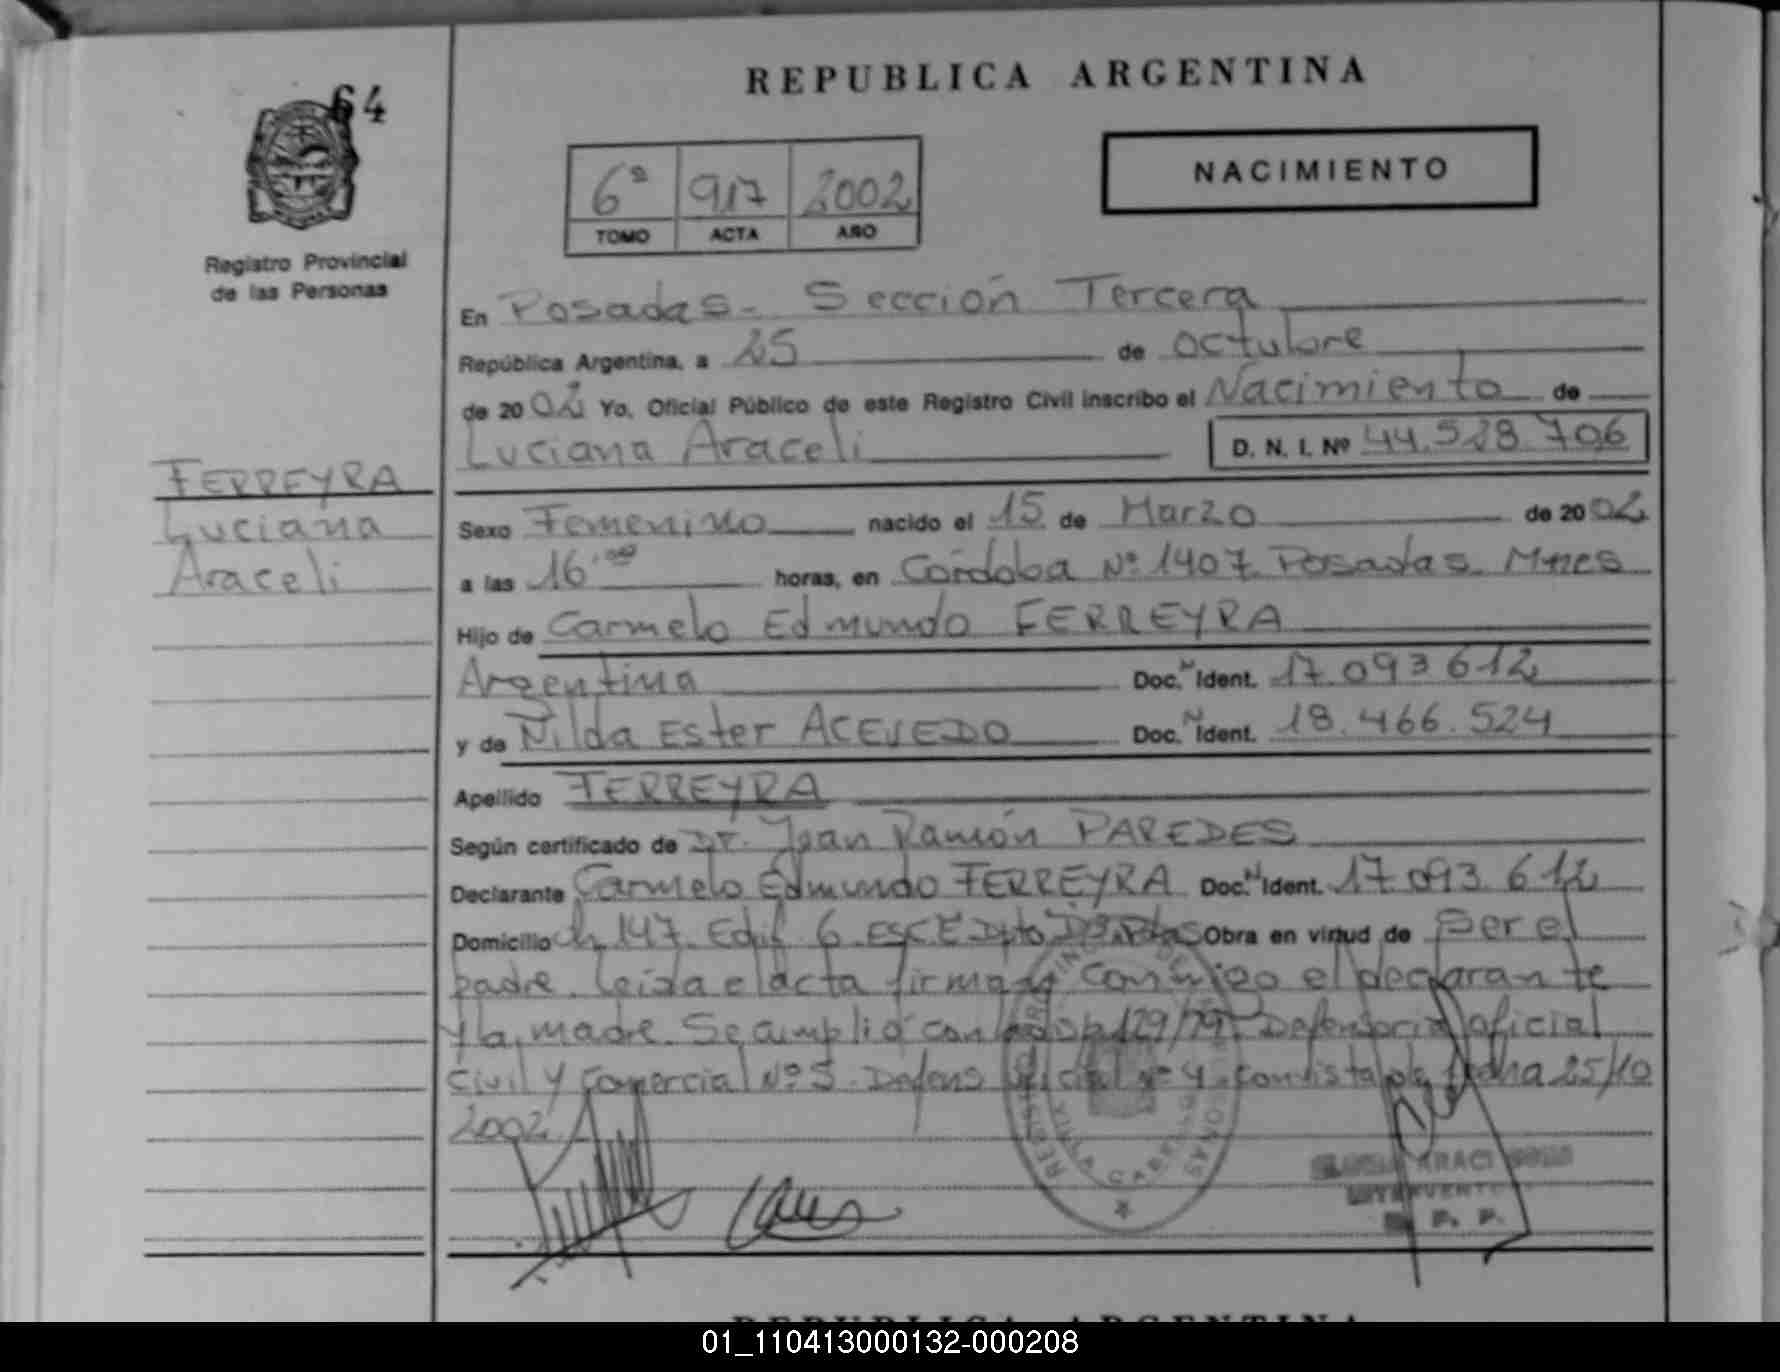 64
REPUBLICA ARGENTINA
6ª 917 2002
TOMO ACTA AÑO
NACIMIENTO
Registro Provincial
de las Personas
En Posadas - Sección Tercera
República Argentina, a 25 de octubre
de 2002 Yo, Oficial Público de este Registro Civil inscribo el Nacimiento de
Luciana Araceli D. N. I. Nº 44.528.706
FERREYRA
Luciana
Araceli
Sexo Femenino nacido el 15 de Marzo de 2002
a las 16.00 horas, en Córdoba Nº 1407 Posadas Mnes
Hijo de Carmelo Edmundo FERREYRA
Argentina Doc. N Ident. 17.093.612
y de Nilda Ester ACEVEDO Doc. N Ident. 18.466.524
Apellido FERREYRA
Según certificado de Dr. Juan Ramón PAREDES
Declarante Carmelo Edmundo FERREYRA Doc. N Ident. 17.093.612
Domicilio Ch 147 Edif 6 Esc E Dpto Obra en virtud de ser el
padre. Leída el acta firman conmigo el declarante
y la madre. Se cumplió con 129/79 Defensoria oficial
Civil y Comercial Nº 5. Oficial Nº 4 con vista de fecha 25/10
2002.
INTERVENTORA
R. P. P.
REPUBLICA ARGENTINA
01_110413000132-000208